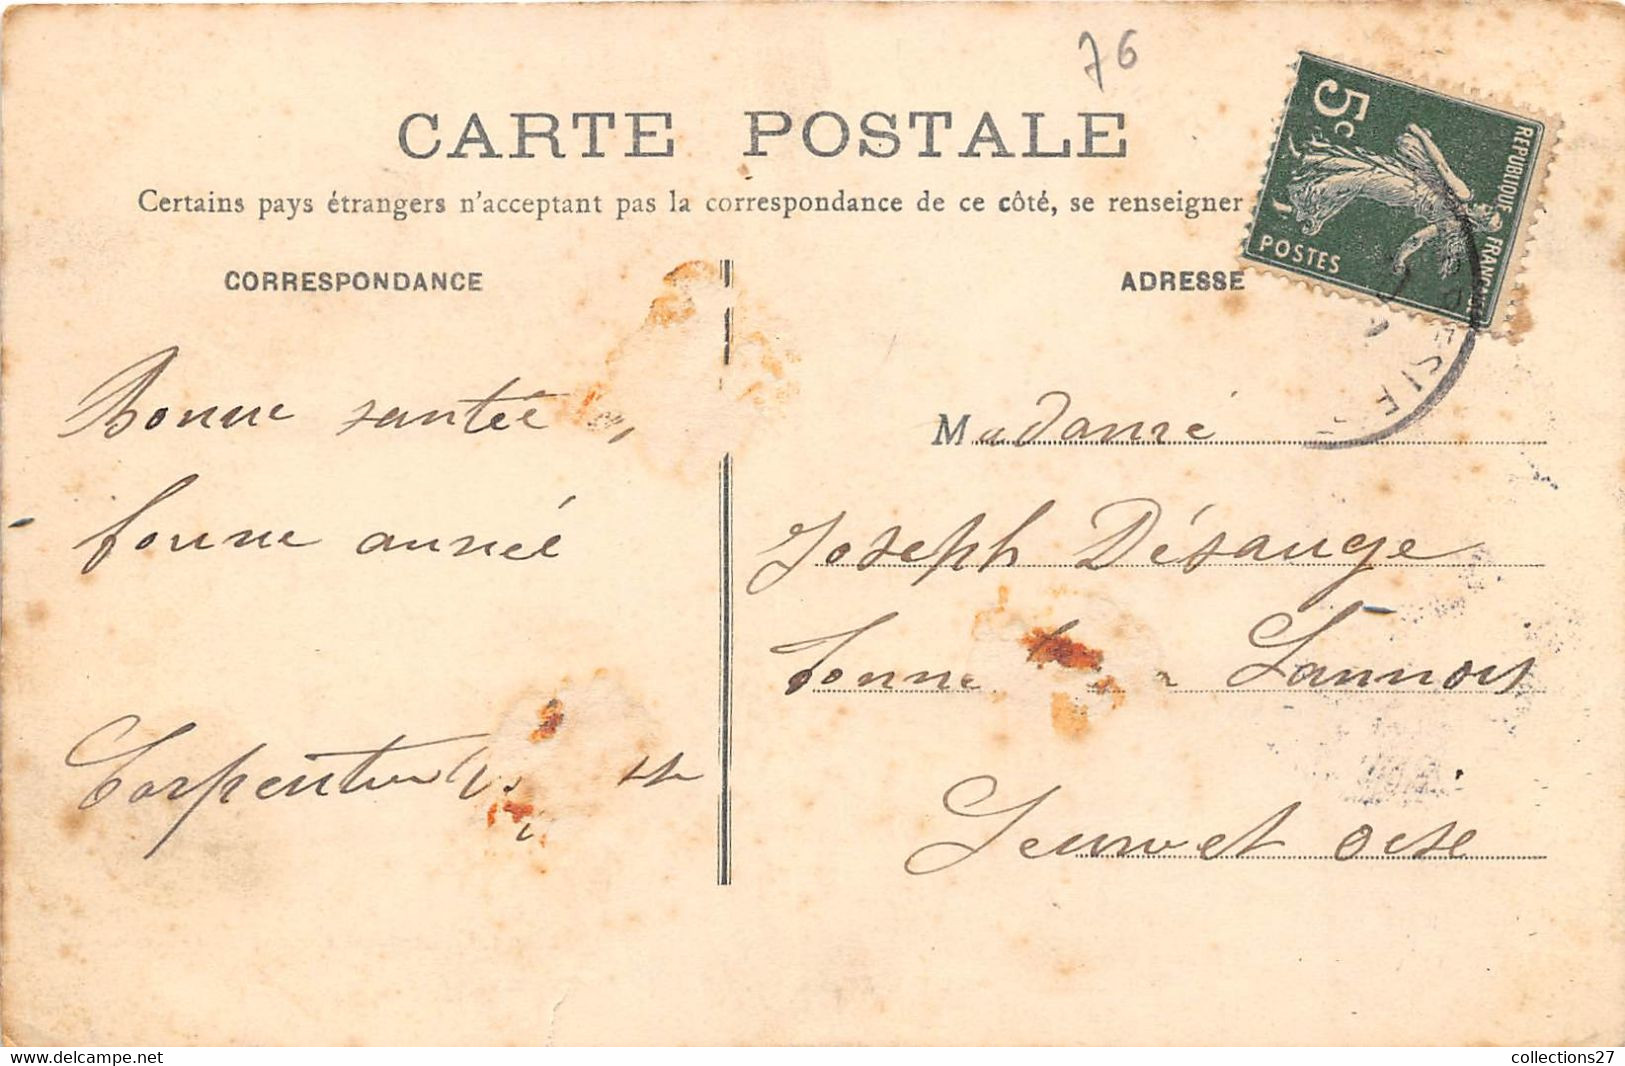 76
CARTE POSTALE
Certains pays étrangers n'acceptent pas la correspondance de ce côté, se renseigner
5c
REPUBLIQUE FRANÇAISE
POSTES
CORRESPONDANCE
ADRESSE
Bonne santée
bonne année
Carpentier
Madame
Joseph Désauge
Lannois
Seine et oise
www.delcampe.net
collections27